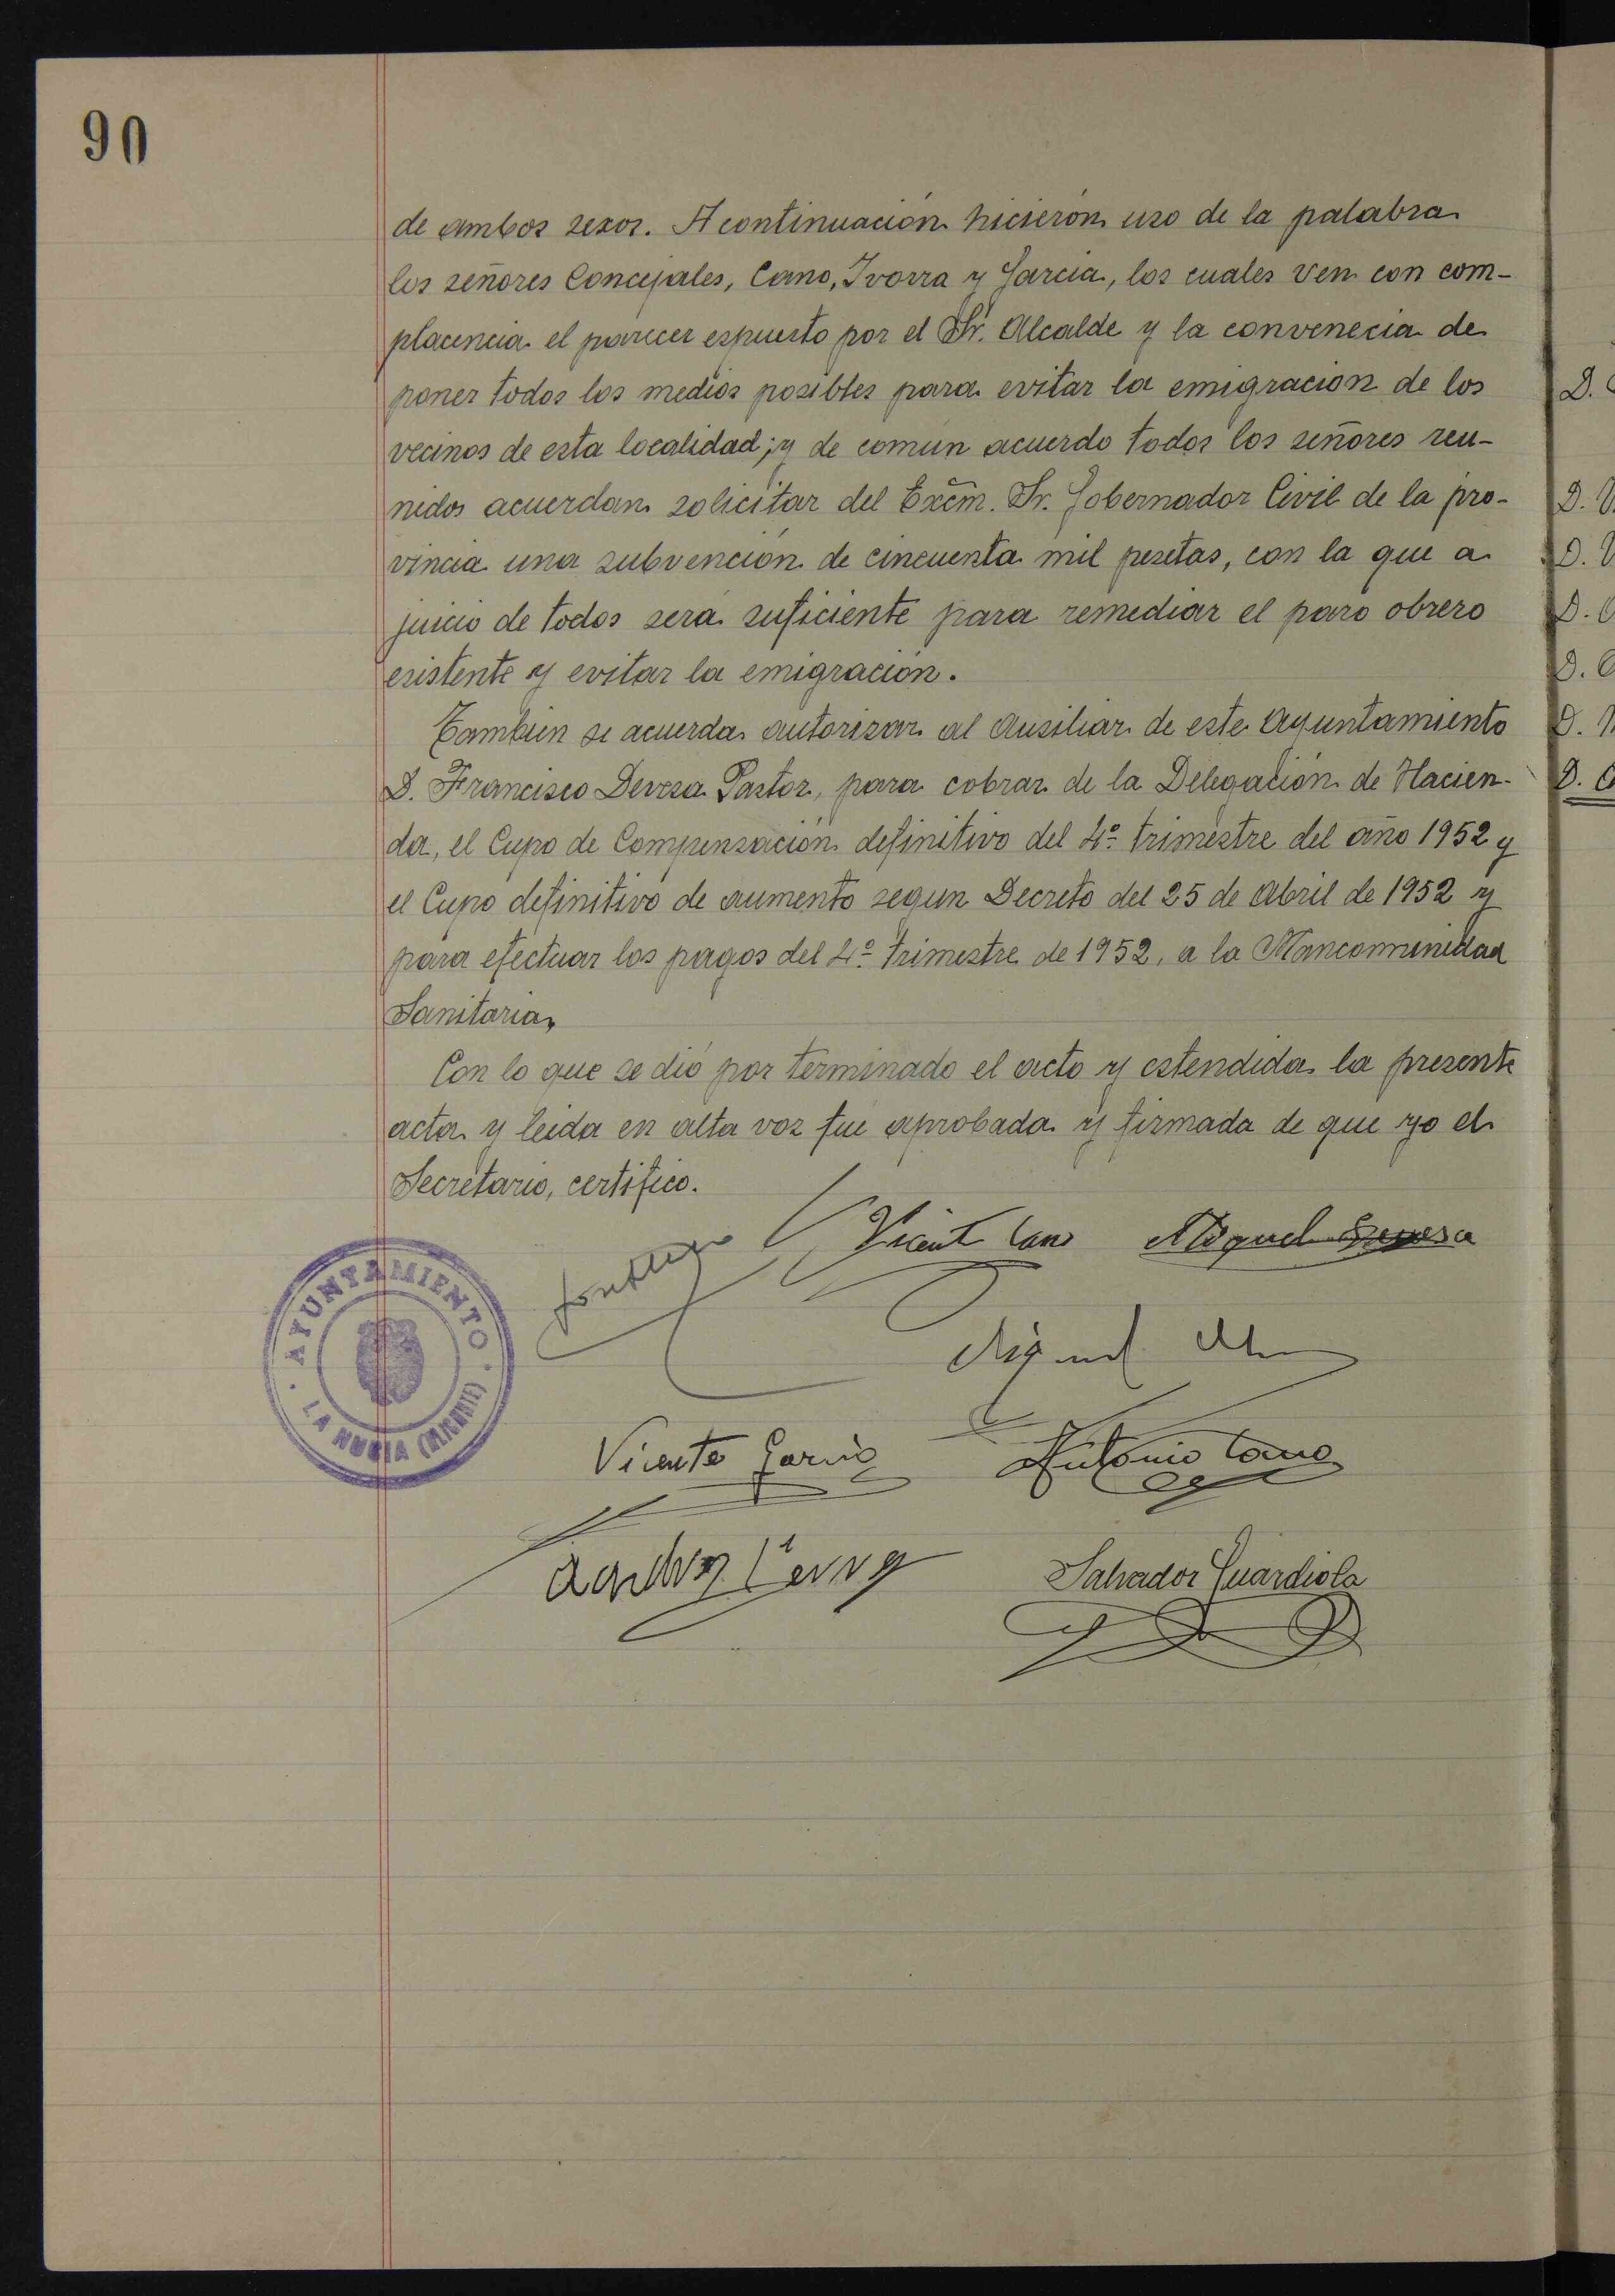 90
de ambos sexos. A continuación hicierón uso de la palabra
los señores Concejales, Cano, Ivorra y García, los cuales ven con com-
placencia el parecer espuesto por el Sr. Alcalde y la convenecia de
poner todos los medios posibles para evitar la emigración de los
vecinos de esta localidad; y de común acuerdo todos los señores reu-
nidos acuerdan solicitar del Excm. Sr. Gobernador Civil de la pro-
vincia una subvención de cincuenta mil pesetas, con la que a
juicio de todos será suficiente para remediar el paro obrero
esistente y evitar la emigración.
Tambien se acuerda autorisar al Ausiliar de este Ayuntamiento
D. Francisco Devesa Pastor, para cobrar de la Delegación de Hacien-
da, el Cupo de Compensación definitivo del 4º trimestre del año 1952 y
el Cupo definitivo de aumento segun Decreto del 25 de Abril de 1952 y
para efectuar los pagos del 4º trimestre de 1952, a la Mancomunidad
Sanitaria.
Con lo que se dió por terminado el acto y estendida la presente
acta y leida en alta voz fué aprobada y firmada de que yo el
Secretario, certifico.
Vicente Cano Miguel Devesa
Miguel
AYUNTAMIENTO
LA NUCIA (ALICANTE)
Vicente García Antonio Cano
Salvador Guardiola
D.
D. V
D. V
D.
D.
D.
D.